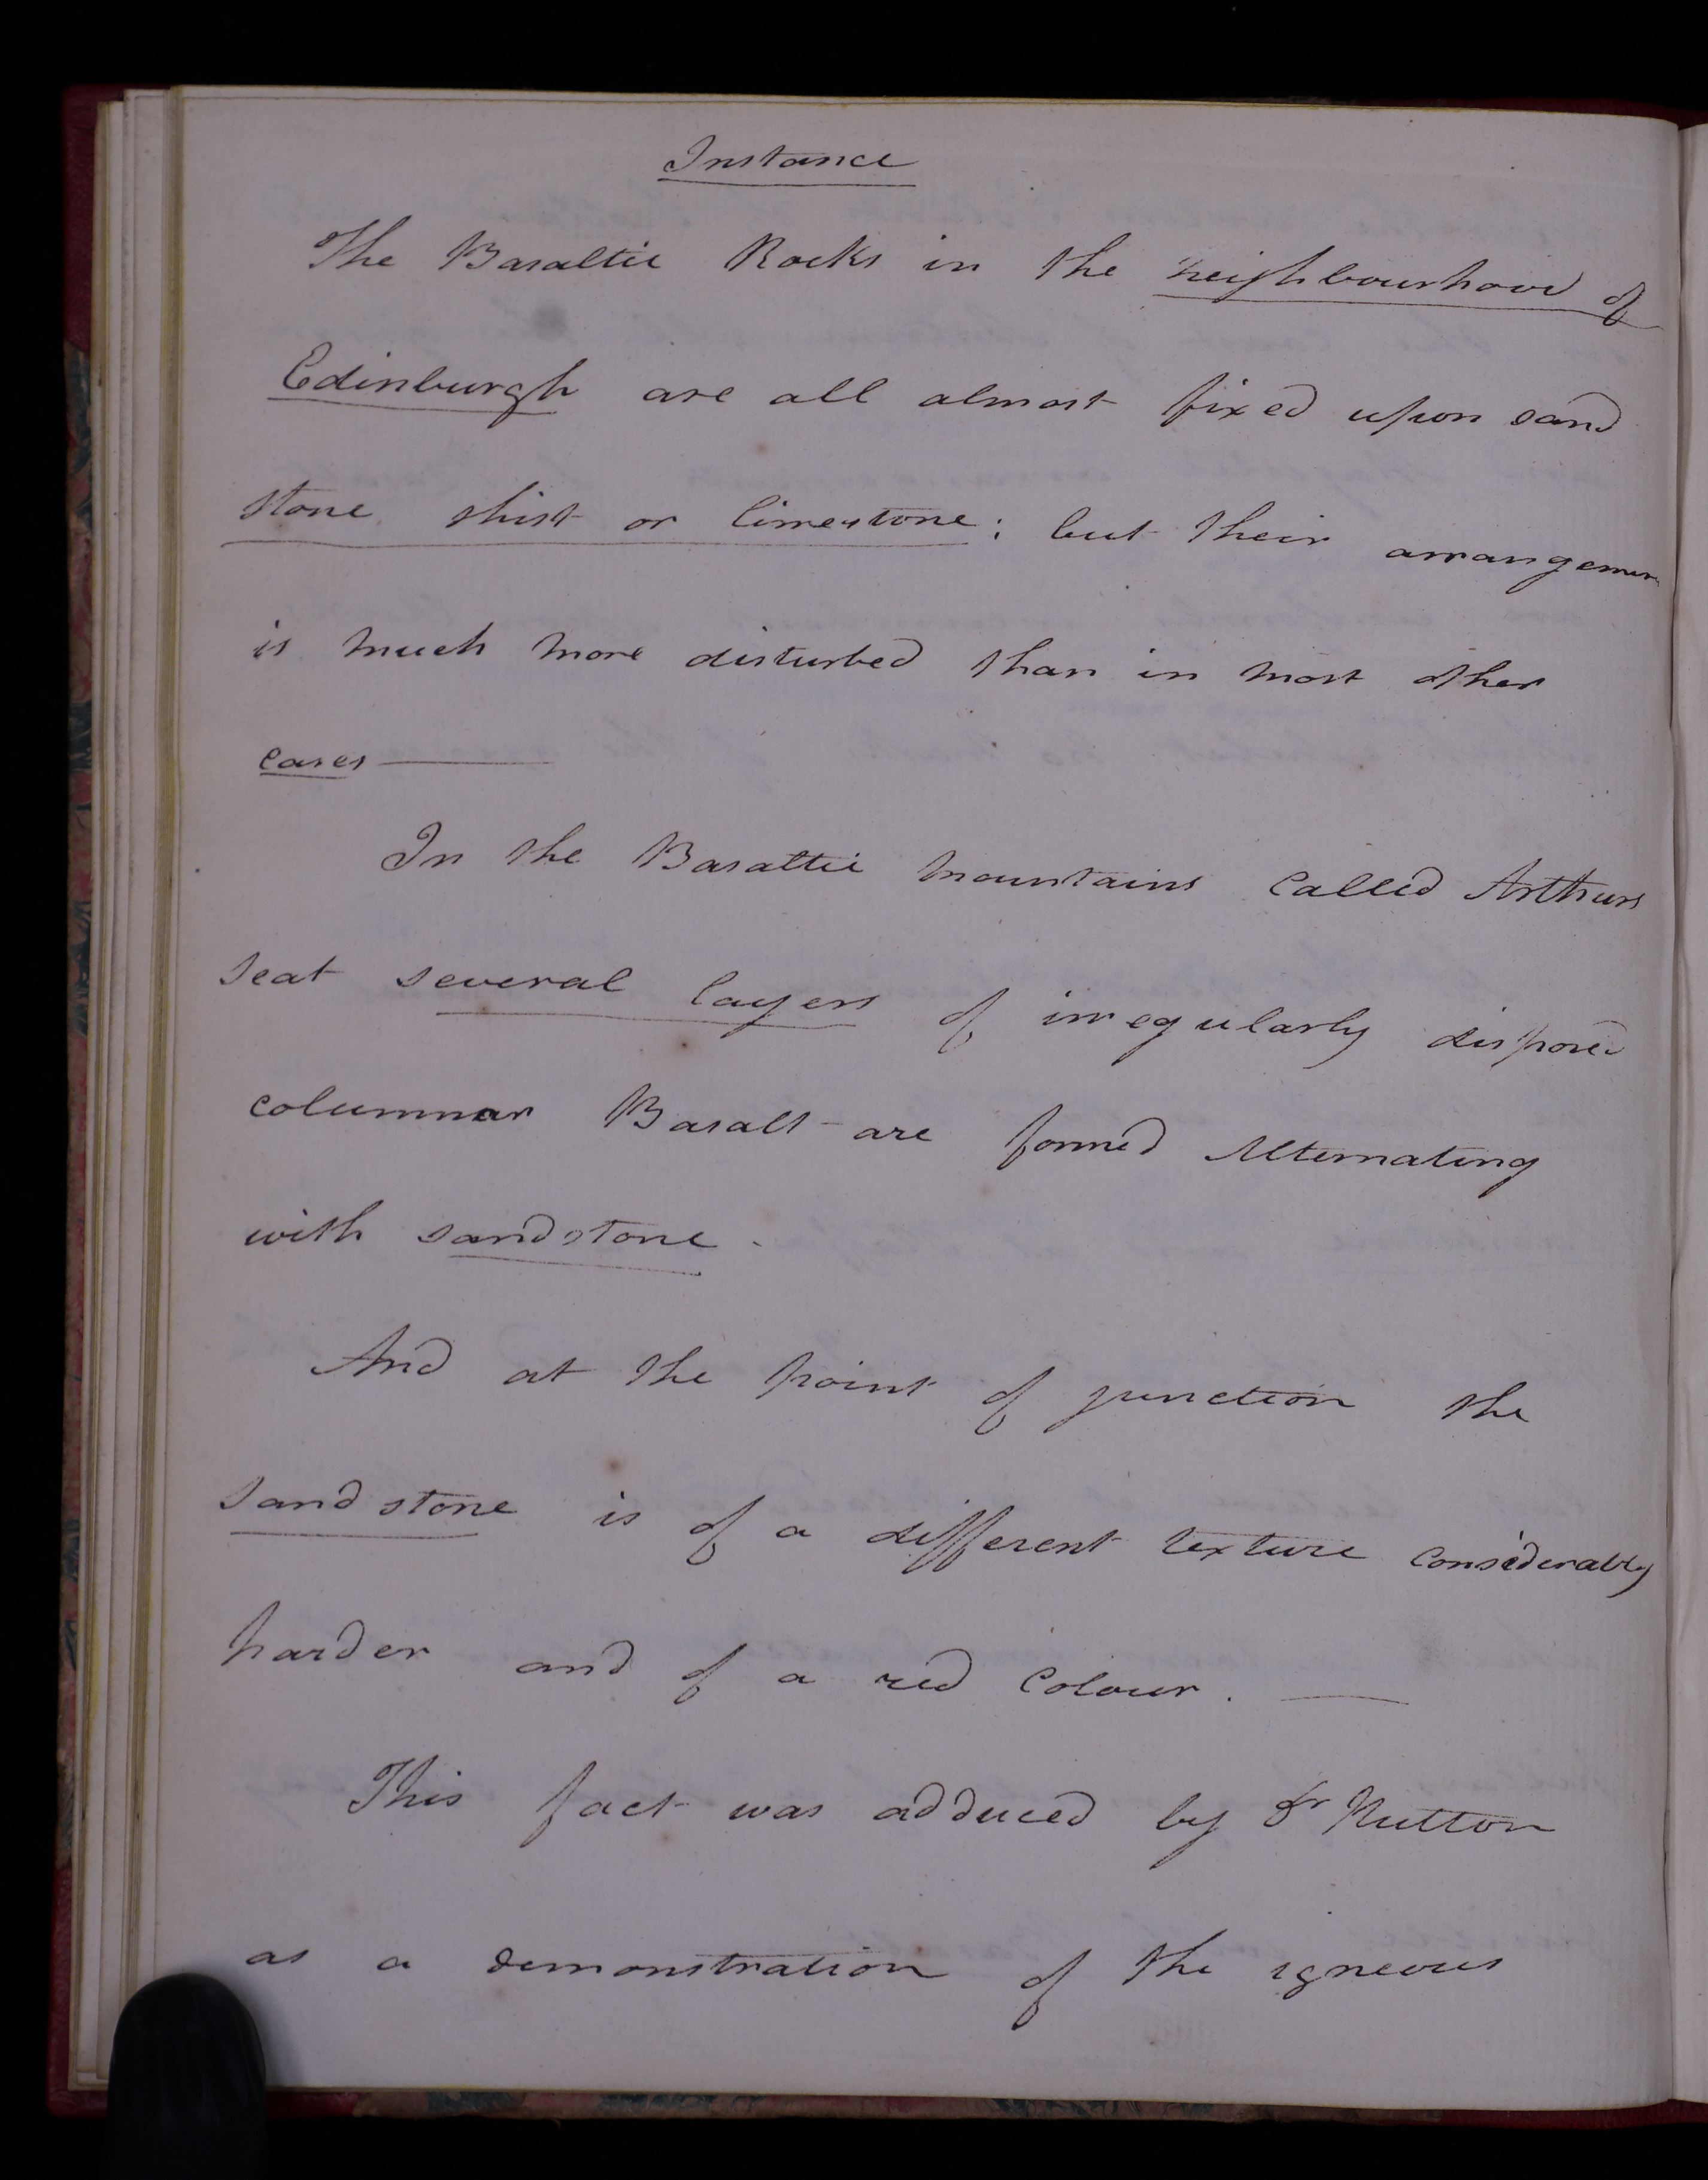 Instance
The Basaltic Rocks in the neighbourhood of
Edinburgh are all almost fixed upon sand
stone shist or limestone; but their arrangemen
is much more disturbed than in most other
cases —
In the Basaltic mountains called Arthurs
seat several layers of irregularly disposed
columnar Basalt are formed Alternating
with sandstone.
And at the point of junction the
sandstone is of a different texture considerably
harder and of a red colour. —
This fact was adduced by Dr Hutton
as a demonstration of the igneous